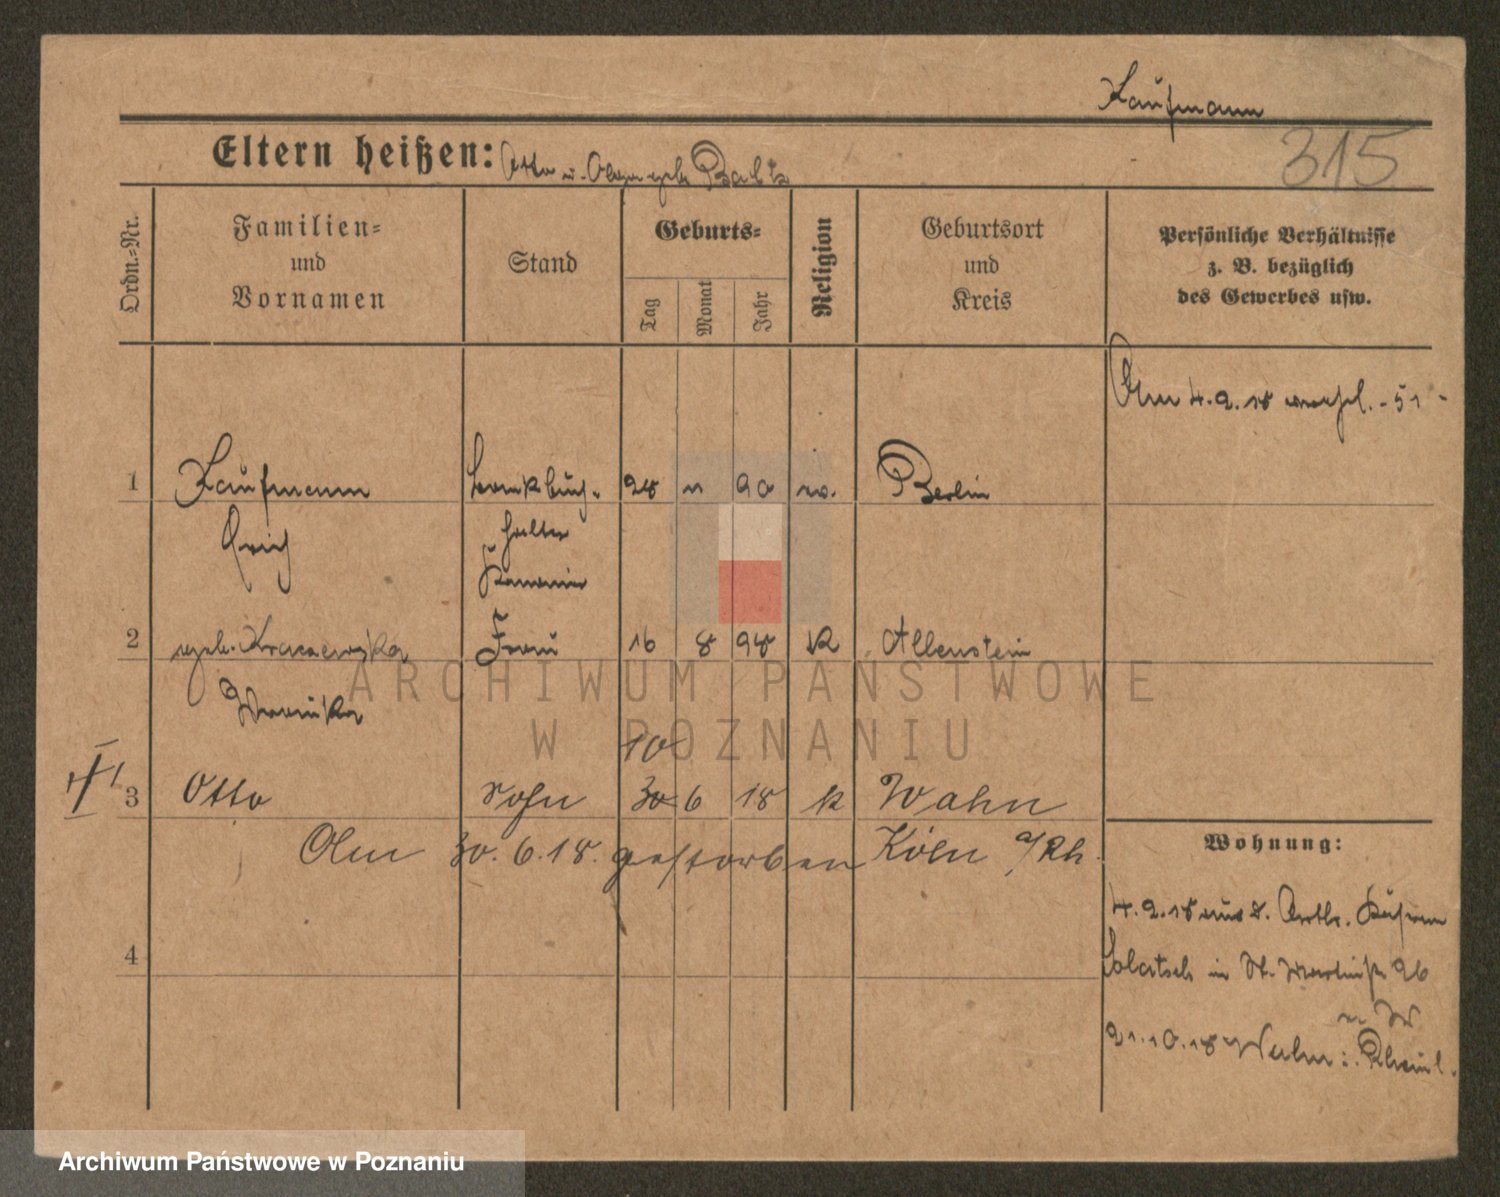 Kaufmann
315
Eltern heißen: Otto u. Olga geb.
Ordn.-Nr.
Familien- und Vornamen
Stand
Geburts-
Tag
Monat
Jahr
Religion
Geburtsort und Kreis
Persönliche Verhältnisse z. B. bezüglich des Gewerbes usw.
Am 4.2.18 - 51 -
1 Kaufmann 28 11 90 ev. Berlin
Erich halter
2 geb. Frau 16 8 98 K Allenstein
10
3 Otto Sohn 30 6 18 k Wahn
Am 30.6.18. gestorben Köln a/Rh.
Wohnung:
4.2.18 aus
Solatsch in St. Martinstr 26
4
21.10.18 Wahn i. Rheinl.
ARCHIWUM PAŃSTWOWE
W POZNANIU
Archiwum Państwowe w Poznaniu